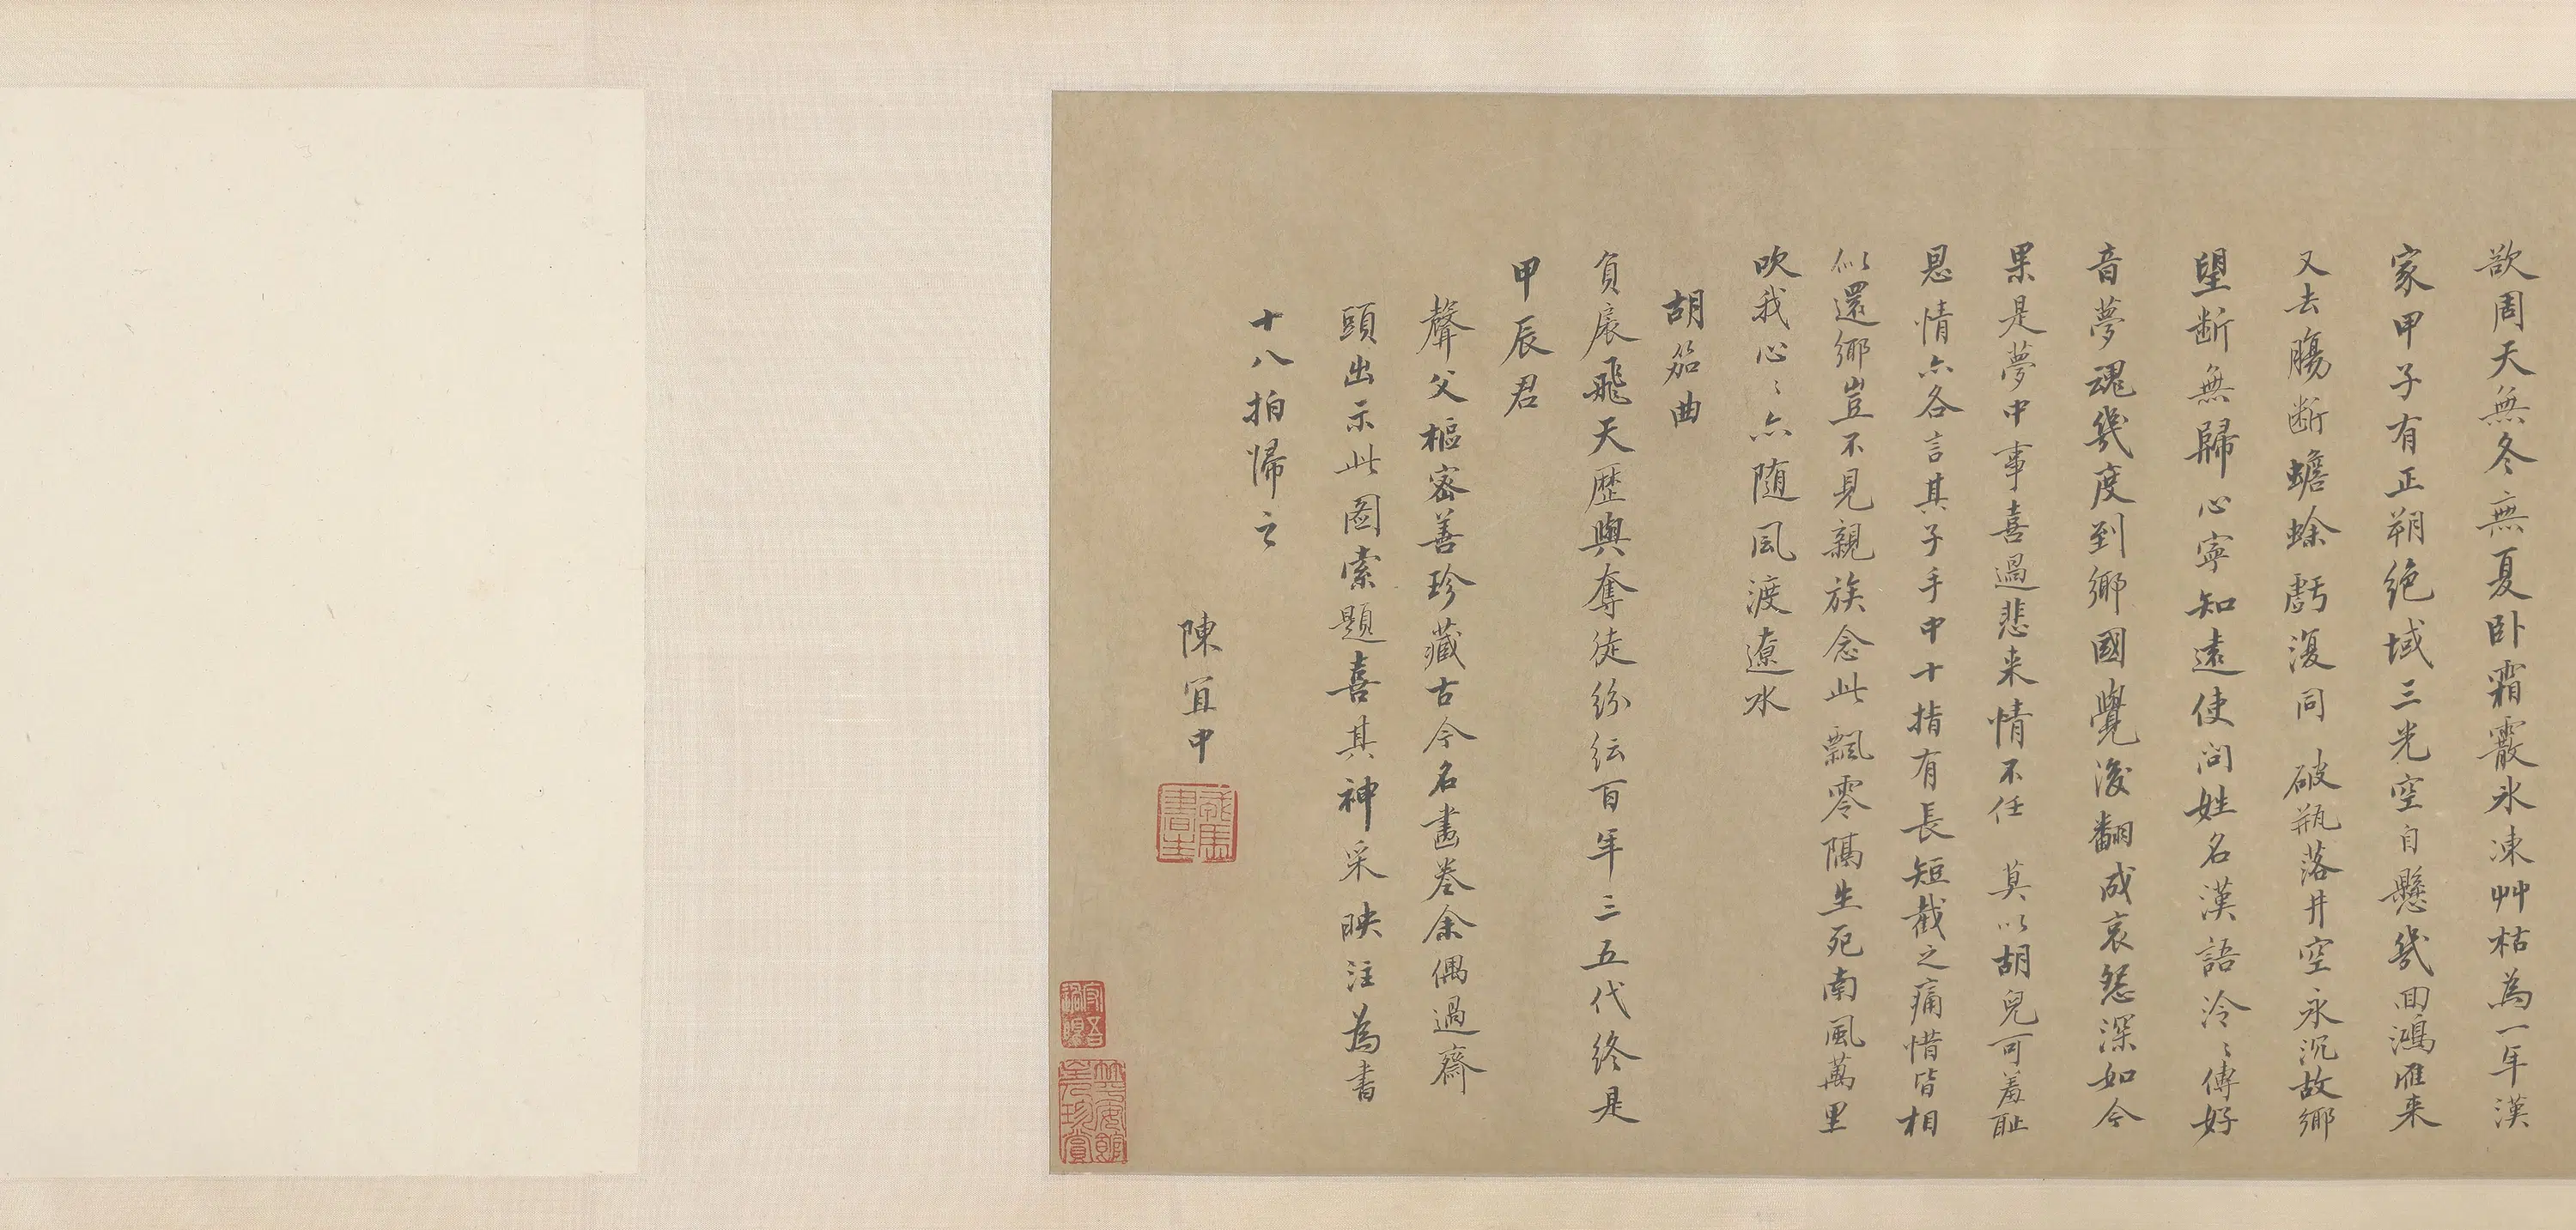 欲周天無冬無夏卧霜霰水凍艸枯為一年漢
家甲子有正朔絶域三光空自懸幾回鴻雁来
又去腸断蟾蜍虧復同 破瓶落井空永沉故鄉
望断無歸心寧知遠使问姓名漢語泠〻傳好
音夢魂幾度到鄉國覺後翻成哀怨深如今
果是夢中事喜過悲来情不任 莫以胡兒可羞耻
恩情亦各言其子手中十指有長短截之痛惜皆相
似還鄉豈不見親族念此飄零隔生死南風萬里
吹我心〻亦随風渡遼水
胡笳曲
負扆飛天歴與奪徒紛紜百年三五代終是
甲辰君
聲父樞密善珍藏古今名畫巻余偶過齋
頭出示此图索題喜其神采映注為書
十八拍帰之
陳宜中
戎馬書生